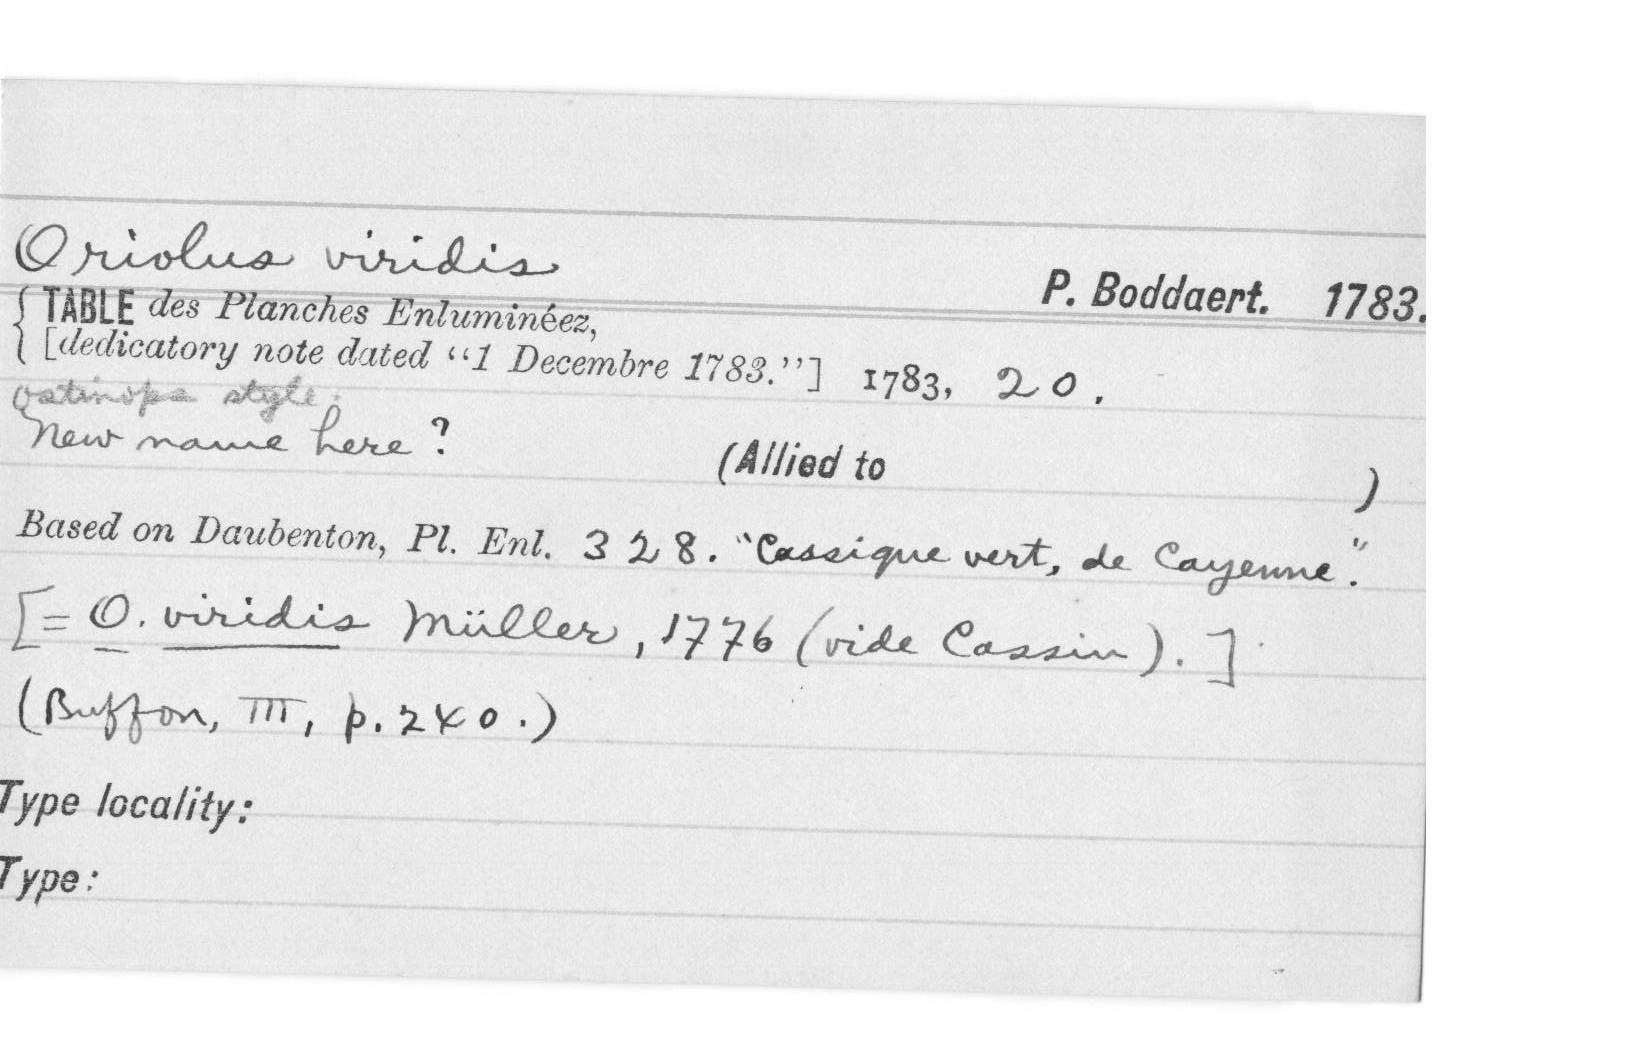 Oriolus viridis
P. Boddaert. 1783.
{ TABLE des Planches Enluminéez,
[dedicatory note dated “1 Decembre 1783.”] 1783, 20.
ostinops style.
New name here?
(Allied to )
Based on Daubenton, Pl. Enl. 328. "Cassique vert, de Cayenne".
[= O. viridis Müller, 1776 (vide Cassin).]
(Buffon, III, p. 240.)
Type locality:
Type: